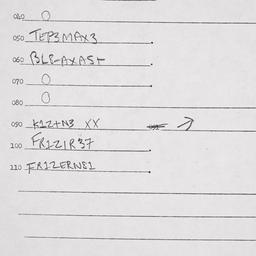 040 O
050 TEP3MAX3.
060 BLE-AXAST.
070 O
080 O
090 K1Z+N3 XX →
100 FR1Z1R37.
110 FR1ZERNE1.